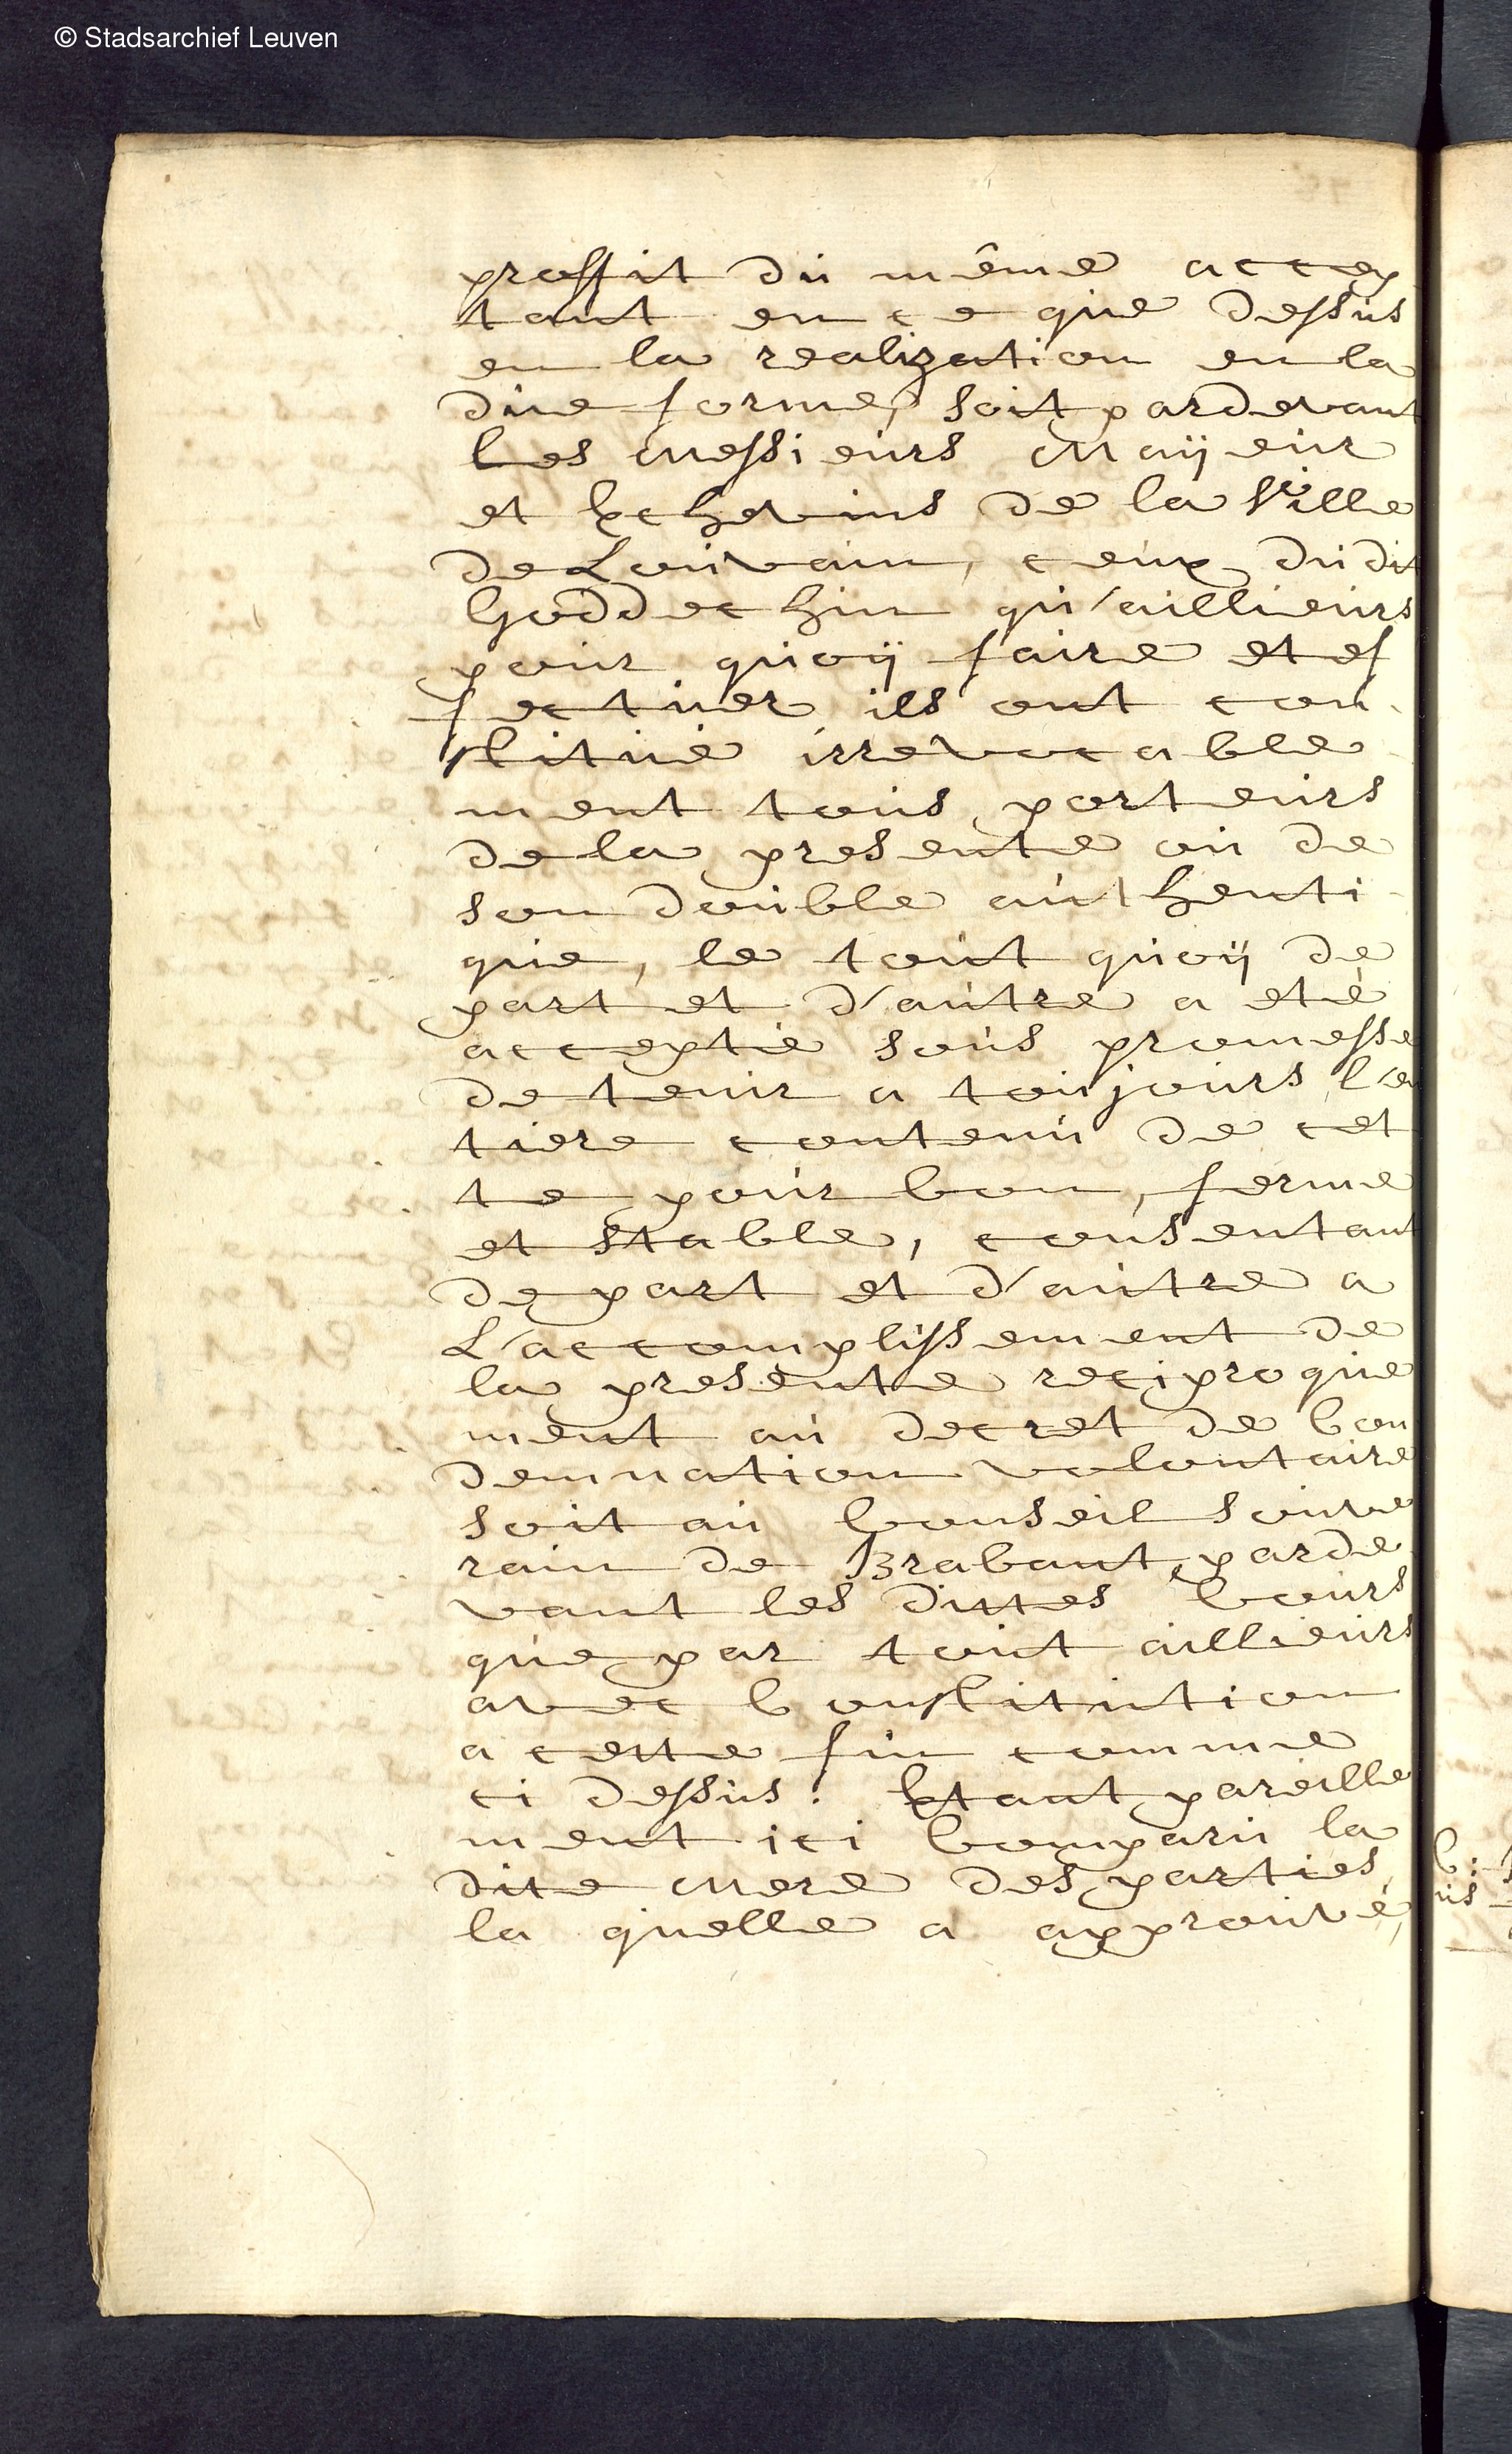 © Stadsarchief Leuven
proffit du même accep
tant en ce que dessus
en la realization en la
due forme, soit pardevant
les Messieurs Maÿeur
et Echevins de la Ville
de Louvain, ceux dudit
Goddechin qu'aillieurs
pour quoÿ faire et ef
fectuer ils ont con
stitué irrevocable
ment tous porteurs
de la presente ou de
son double authenti
que, le tout quoÿ de
part et d'autre a eté
acceptée sous promesse
de tenir a toujours l'en
tiere contenu de cet
te pour bon, ferme
et stable, consentant
de part et d'autre a
L'accomplissement de
la presente reciproque
ment au decret de Con
demnation volontaire
soit au Conseil souve
rain de Brabant, parde
vant les dittes Cours
que par tout aillieurs
avec Constitution
a cette fin comme
ci dessus. Etant pareille
ment ici Comparu la
dite Mere des parties,
la quelle a approuvé,